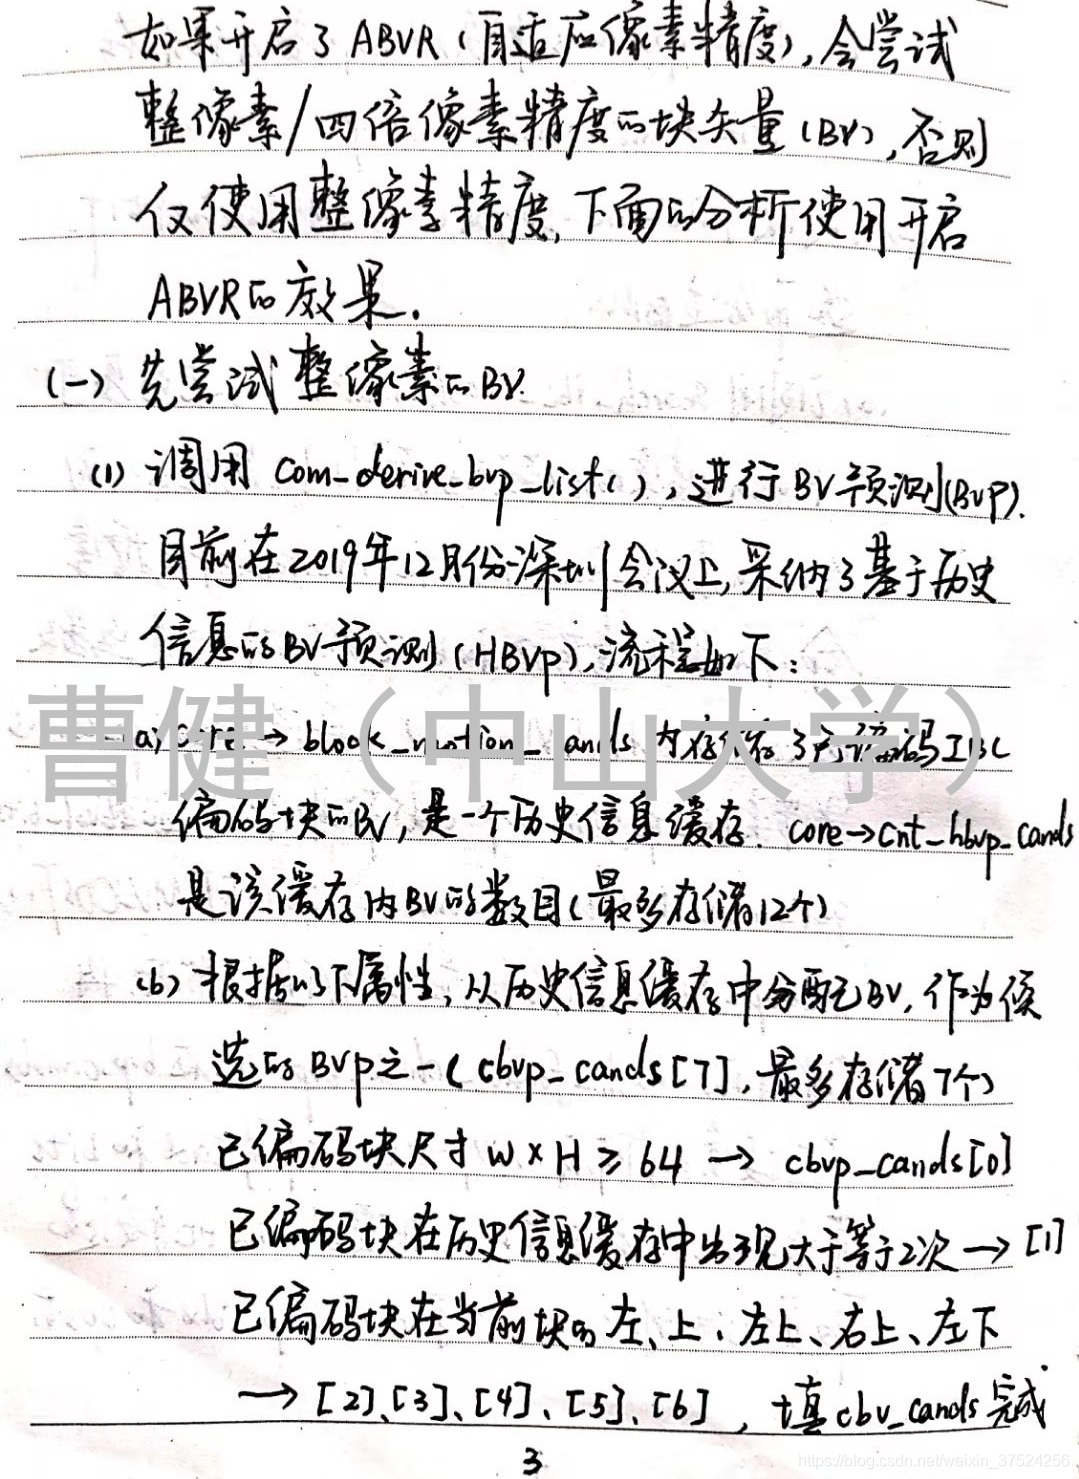 如果开启了ABVR(自适应像素精度),会尝试
整像素/四倍像素精度的块矢量(BV),否则
仅使用整像素精度,下面的分析使用开启
ABVR的效果.
(一) 先尝试整像素的BV.
(1) 调用 com_derive_bvp_list(),进行BV预测(BVP).
目前在2019年12月份深圳会议上,采纳了基于历史
信息的BV预测(HBVP),流程如下:
曹健(中山大学)
(a) core→block_motion_cands 内存储了已编码IBC
编码块的BV,是一个历史信息缓存. core→cnt_hbvp_cands
是该缓存内BV的数目(最多存储12个)
(b) 根据以下属性,从历史信息缓存中分配BV,作为候
选的BVP之一(cbvp_cands[7],最多存储7个)
已编码块尺寸 W×H≥64 → cbvp_cands[0]
已编码块在历史信息缓存中出现大于等于2次→[1]
已编码块在当前块的左、上、左上、右上、左下
→[2]、[3]、[4]、[5]、[6],填cbv_cands完成
3
https://blog.csdn.net/weixin_37524256